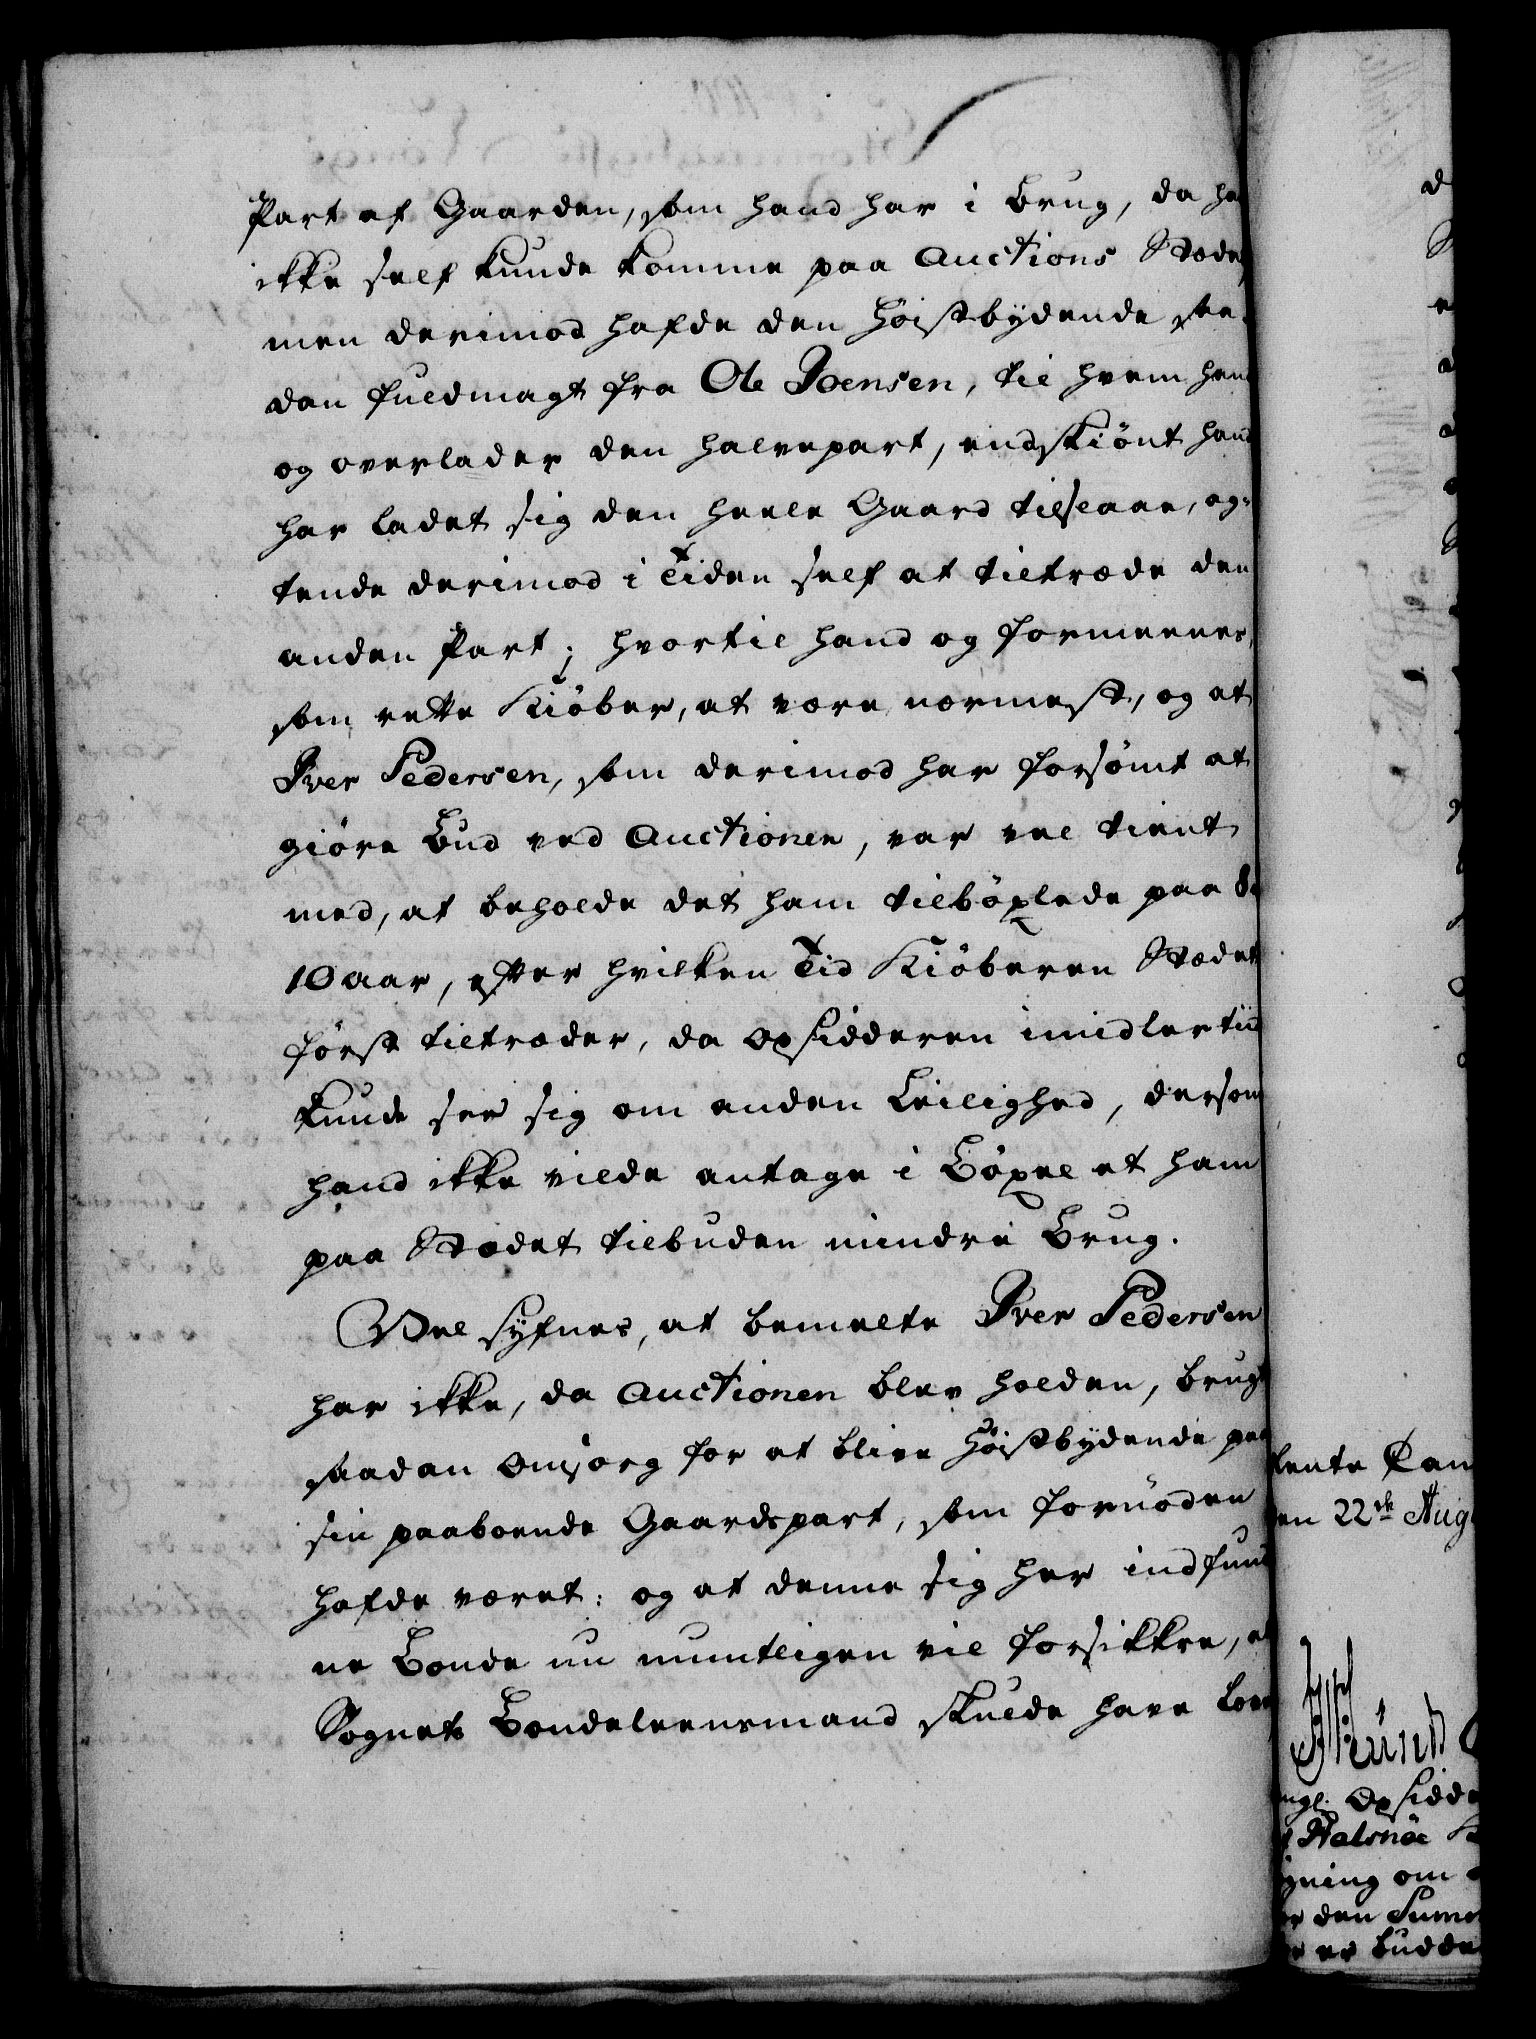 Part af Gaarden, som hand har i Brug, da ha
ikke self kunde komme paa Auctions Stædet
men derimod hafde den Høistbydende saa-
dan fuldmagt fra Ole Joensen, til hvem hand
og overlader den halvepart, endskiønt hand
har ladet sig den heele Gaard tilslaae, ag-
tende derimod i Tiden self at tiltræde den
anden Part; hvortil hand og formeenes,
som rette Kiøber, at være nærmest, og at
Iver Pedersen, som derimod har forsømt at
giøre Bud ved Auctionen, var vel tient
med, at beholde det ham tilbøxlede paa 8 a
10 aar, efter hvilken Tid Kiøberen Stædet
først tiltræder, da Opsidderen imidlertiid
kunde see sig om anden Leilighed, dersom
hand ikke vilde antage i Bøxel et ham
paa Stædet tilbuden mindre Brug.
Vel syfnes, at bemelte Iver Pedersen
har ikke, da Auctionen blev holden, brugt
saadan Omsorg for at blive Høistbydende paa
sin paaboende Gaardspart, som fornøden
hafde været: og at denne sig her indfund
ne Bonde nu mundtligen vil forsikkre, at
Sognets Bondeleensmand skulde have lov
lente Cam
en 22de Aug
ngl. Opsidde
Halsnöe
gning om
den Summ
er budde